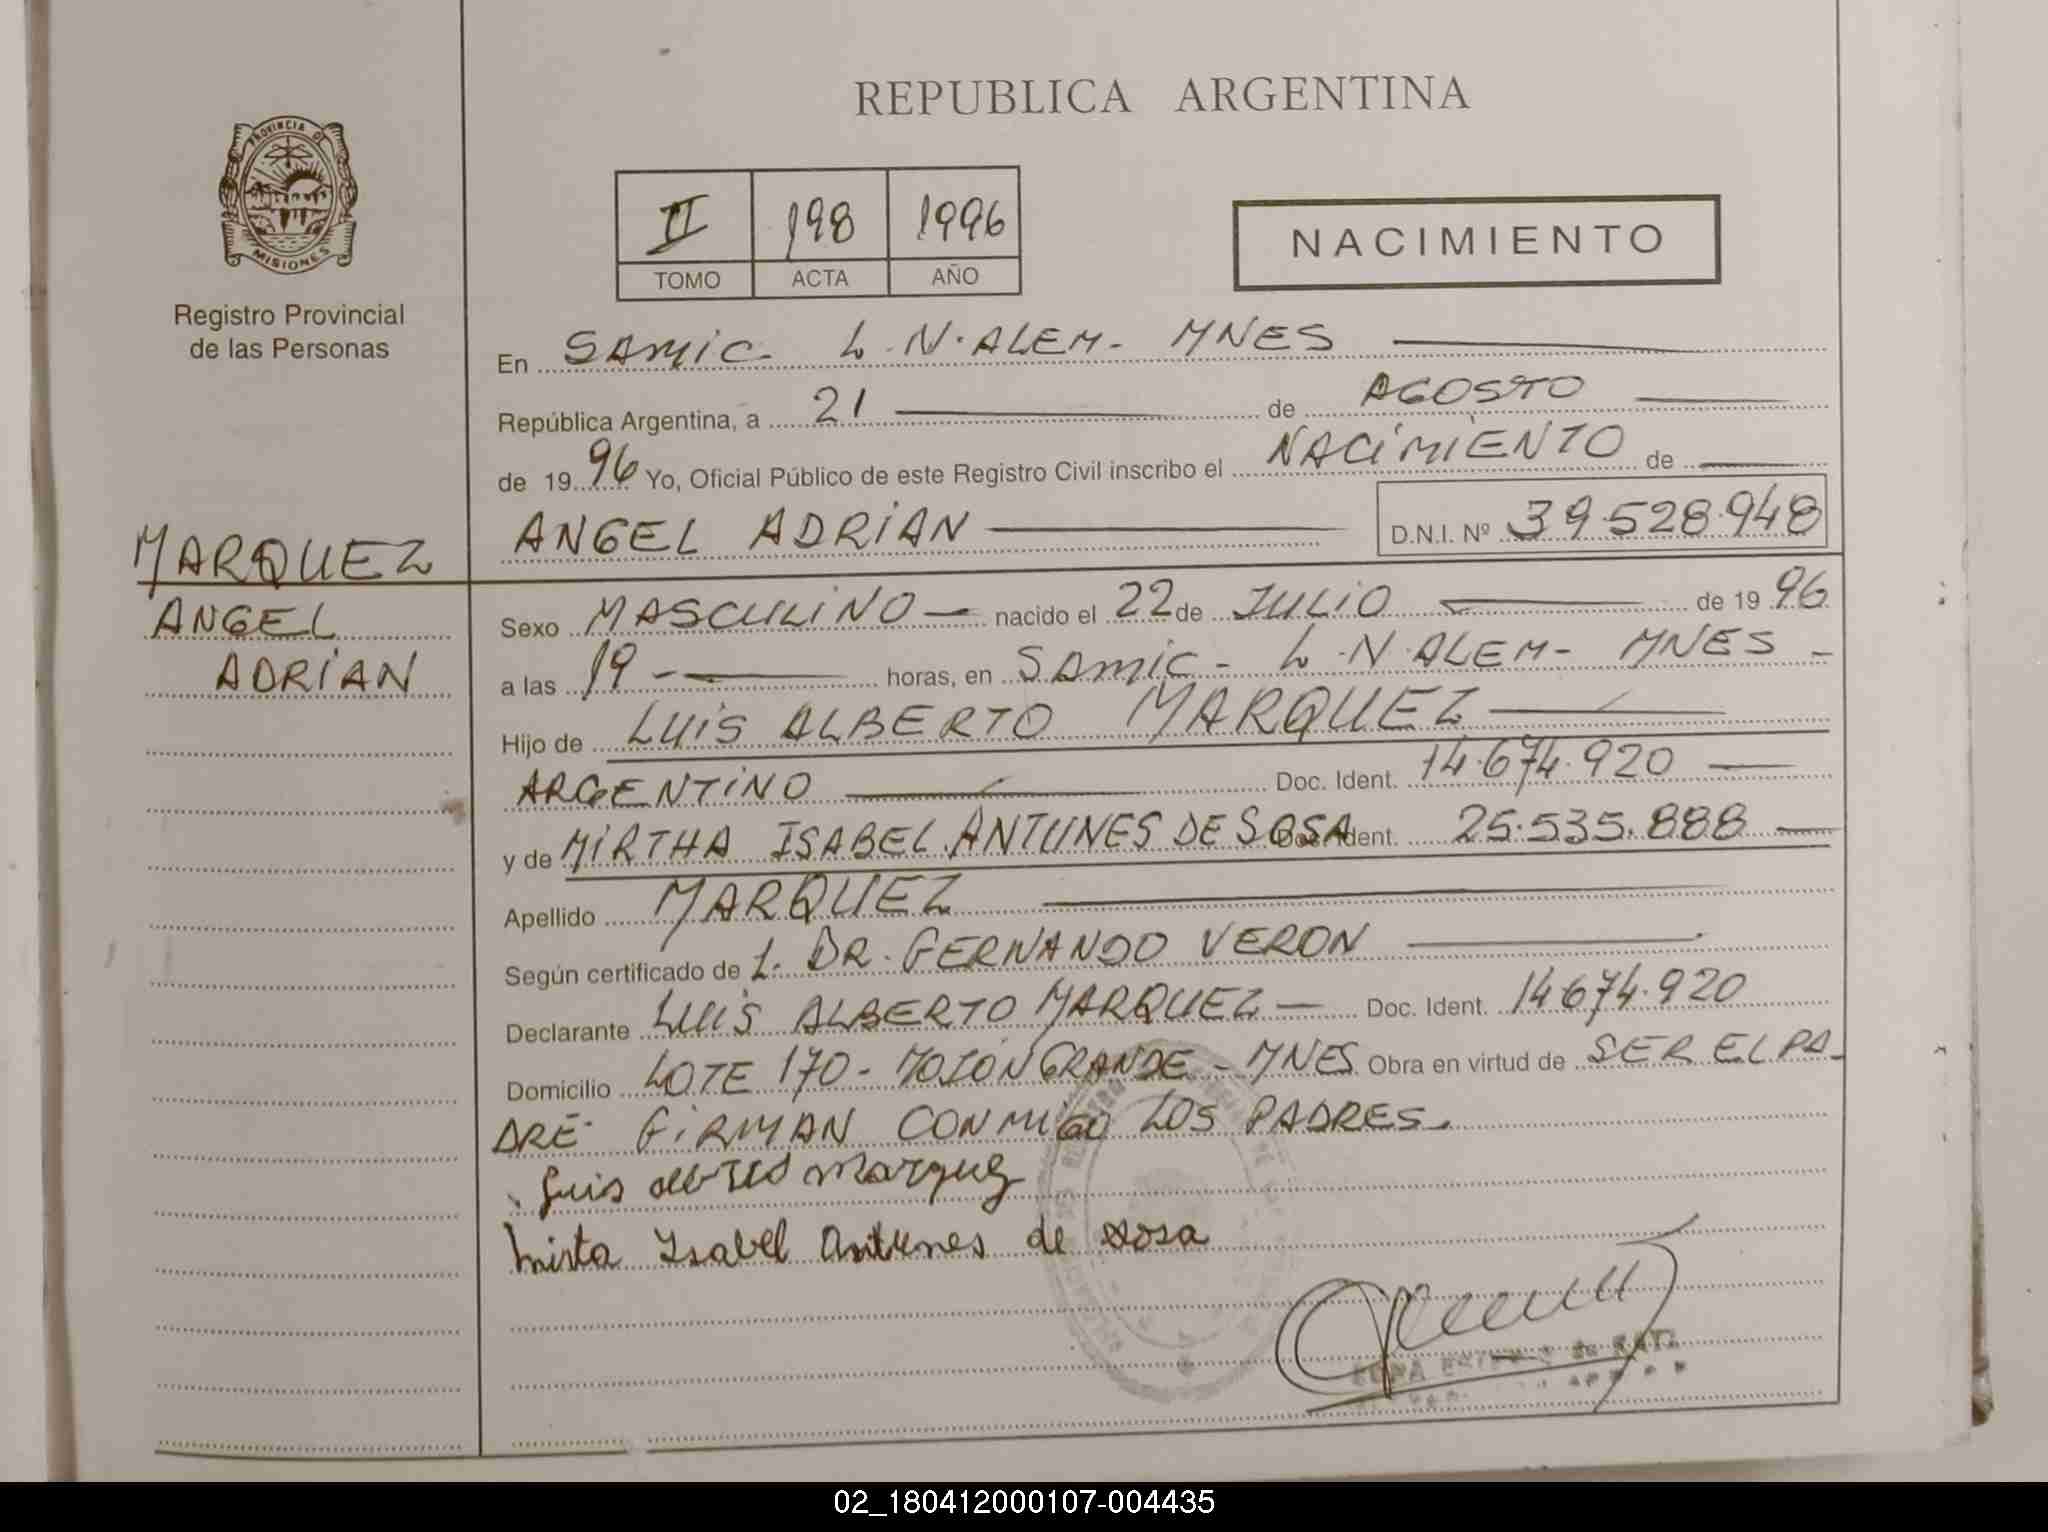 REPUBLICA ARGENTINA
PROVINCIA DE
MISIONES
Registro Provincial
de las Personas
II 198 1996
TOMO ACTA AÑO
NACIMIENTO
En SAMIC L.N.ALEM- MNES
República Argentina, a 21 de AGOSTO
de 1996 Yo, Oficial Público de este Registro Civil inscribo el NACIMIENTO de
ANGEL ADRIAN D.N.I. Nº 39.528.948
MARQUEZ
ANGEL
ADRIAN
Sexo MASCULINO nacido el 22 de JULIO de 1996
a las 19 horas, en SAMIC- L.N.ALEM- MNES-
Hijo de LUIS ALBERTO MARQUEZ
ARGENTINO Doc. Ident. 14.674.920
y de MIRTHA ISABEL ANTUNES DE SOSA Doc. Ident. 25.535.888
Apellido MARQUEZ
Según certificado de L. DR. FERNANDO VERON
Declarante LUIS ALBERTO MARQUEZ Doc. Ident. 14674.920
Domicilio LOTE 170- MOJON GRANDE- MNES Obra en virtud de SER EL PA-
DRE- FIRMAN CONMIGO LOS PADRES.
Luis Marquez
Mirta Isabel Antunes de Sosa
02_180412000107-004435